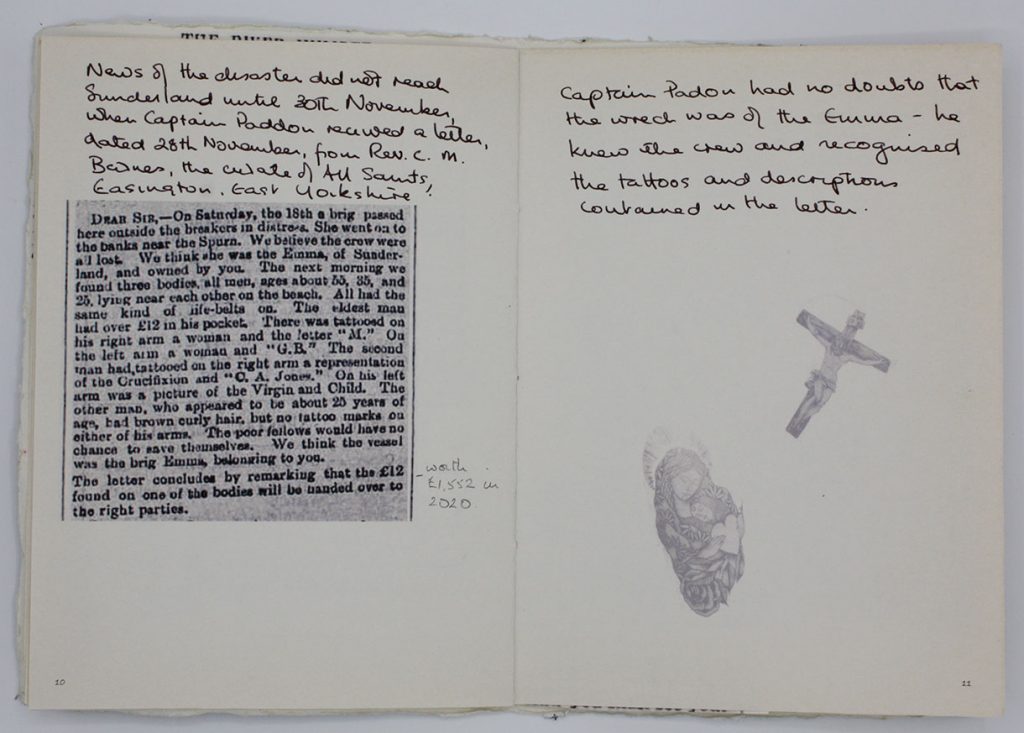 News of the disaster did not reach
Sunderland until 30th November,
when Captain Paddon received a letter,
dated 28th November, from Rev. C. M.
Barnes, the curate of All Saints,
Easington, East Yorkshire!
DEAR SIR,—On Saturday, the 18th a brig passed
here outside the breakers in distress. She went on to
the banks near the Spurn. We believe the crow were
all lost. We think she was the Emma, of Sunder-
land, and owned by you. The next morning we
found three bodies, all men, ages about 55, 35, and
25, lying near each other on the beach. All had the
same kind of life-belts on. The eldest man
had over £12 in his pocket. There was tattooed on
his right arm a woman and the letter "M." On
the left arm a woman and "G.B." The second
man had, tattooed on the right arm a representation
of the Crucifixion and "C. A. Jones." On his left
arm was a picture of the Virgin and Child. The
other man, who appeared to be about 25 years of
age, had brown curly hair, but no tattoo marks on
either of his arms. The poor fellows would have no
chance to save themselves. We think the vessel
was the brig Emma, belonging to you.
The letter concludes by remarking that the £12
found on one of the bodies will be handed over to
the right parties.
- worth
£1,552 in
2020
10
Captain Padon had no doubts that
the wreck was of the Emma - he
knew the crew and recognised
the tattoos and descriptions
contained in the letter.
11